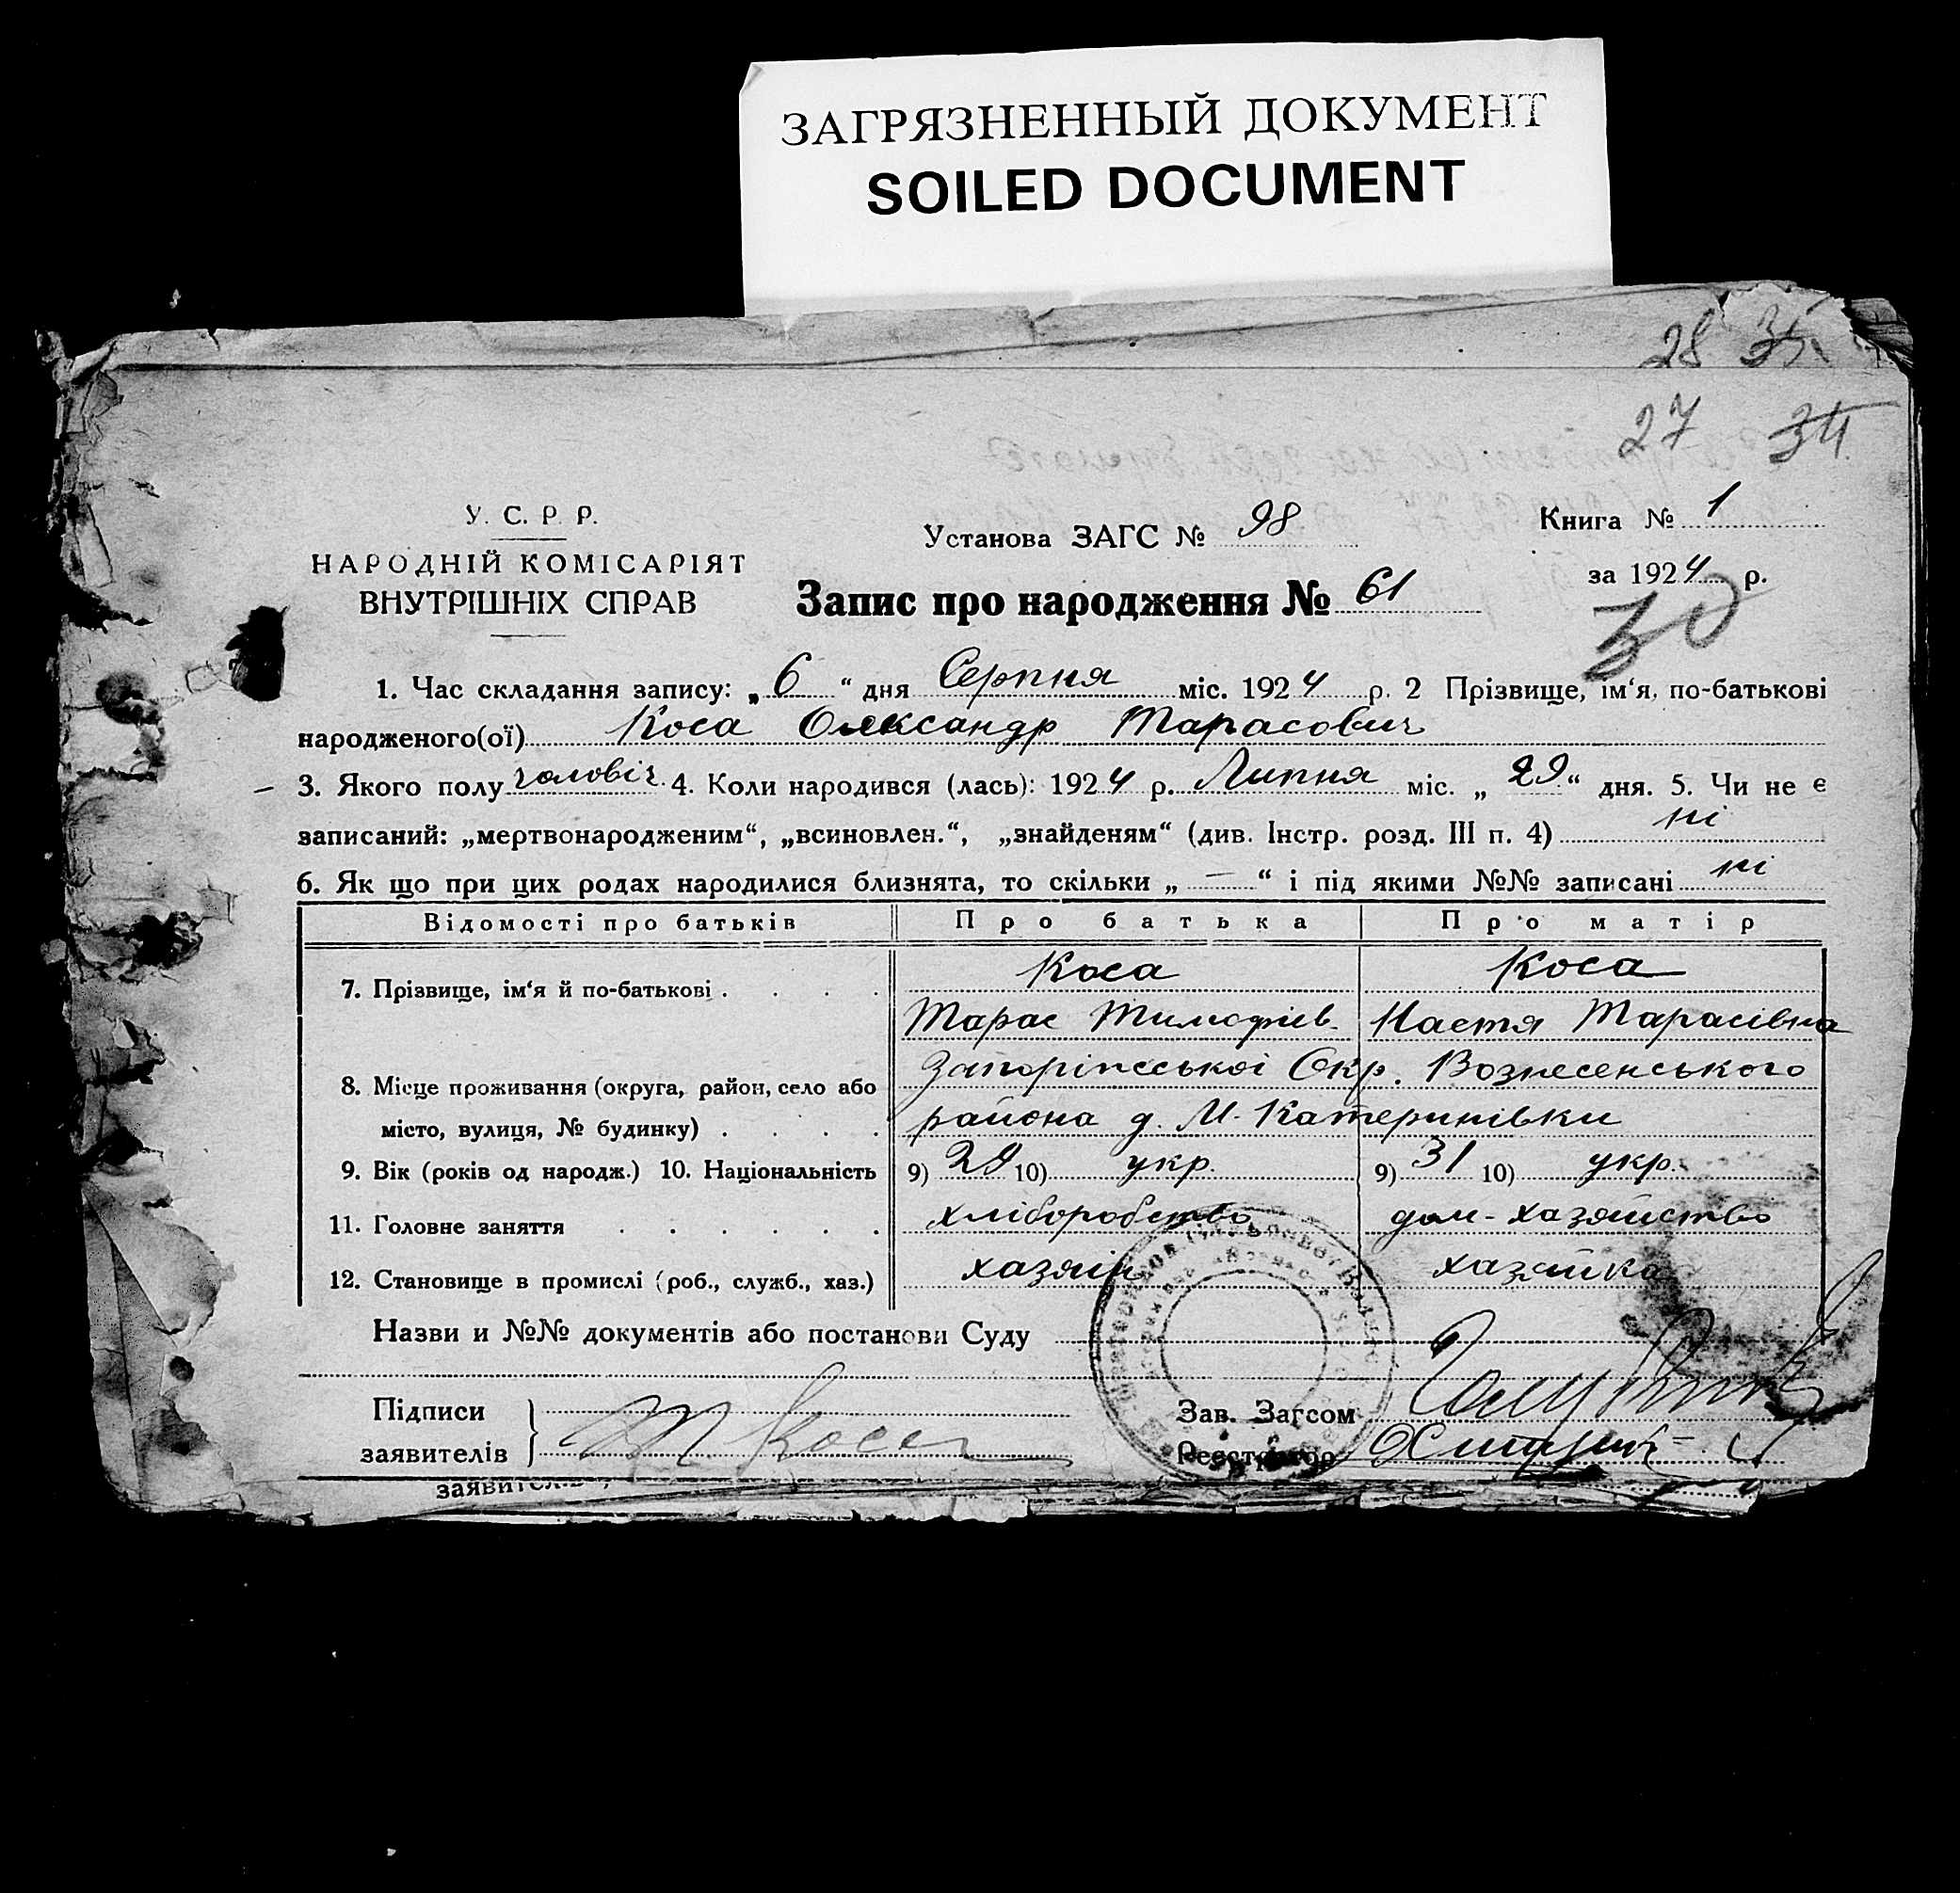 ЗАГРЯЗНЕННЫЙ ДОКУМЕНТ
SOILED DOCUMENT
28 35
27 34
У. С. Р. Р.
НАРОДНІЙ КОМІСАРІЯТ
ВНУТРІШНІХ СПРАВ
Установа ЗАГС № 98
Запис про народження № 61
Книга № 1
за 1924 р.
30
1. Час складання запису: „6“ дня Серпня міс. 1924 р. 2 Прізвище, ім‘я, по-батькові
народженого(ої) Коса Олександр Тарасович
3. Якого полу чоловіч. 4. Коли народився (лась): 1924 р. Липня міс. „29“ дня. 5. Чи не є
записаний: „мертвонародженим“, „всиновлен.“, „знайденям“ (див. Інстр. розд. III п. 4) ні
6. Як що при цих родах народилися близнята, то скільки „—“ і під якими №№ записані ні
Відомості про батьків Про батька Про матір
7. Прізвище, ім‘я й по-батькові Коса Коса
Тарас Тимофіїв. Настя Тарасівна
8. Місце проживання (округа, район, село або Запоріжської Окр. Вознесенського
місто, вулиця, № будинку) района д. М-Катеринівки
9. Вік (років од народж.) 10. Національність 9) 29 10) укр. 9) 31 10) укр.
11. Головне заняття хліборобство дом-хазяйство
12. Становище в промислі (роб., служб., хаз.) хазяїн хазяйка
Назви и №№ документів або постанови Суду
Підписи
заявителів
Т Коса
Зав. Загсом
Реєстратор
заявителів